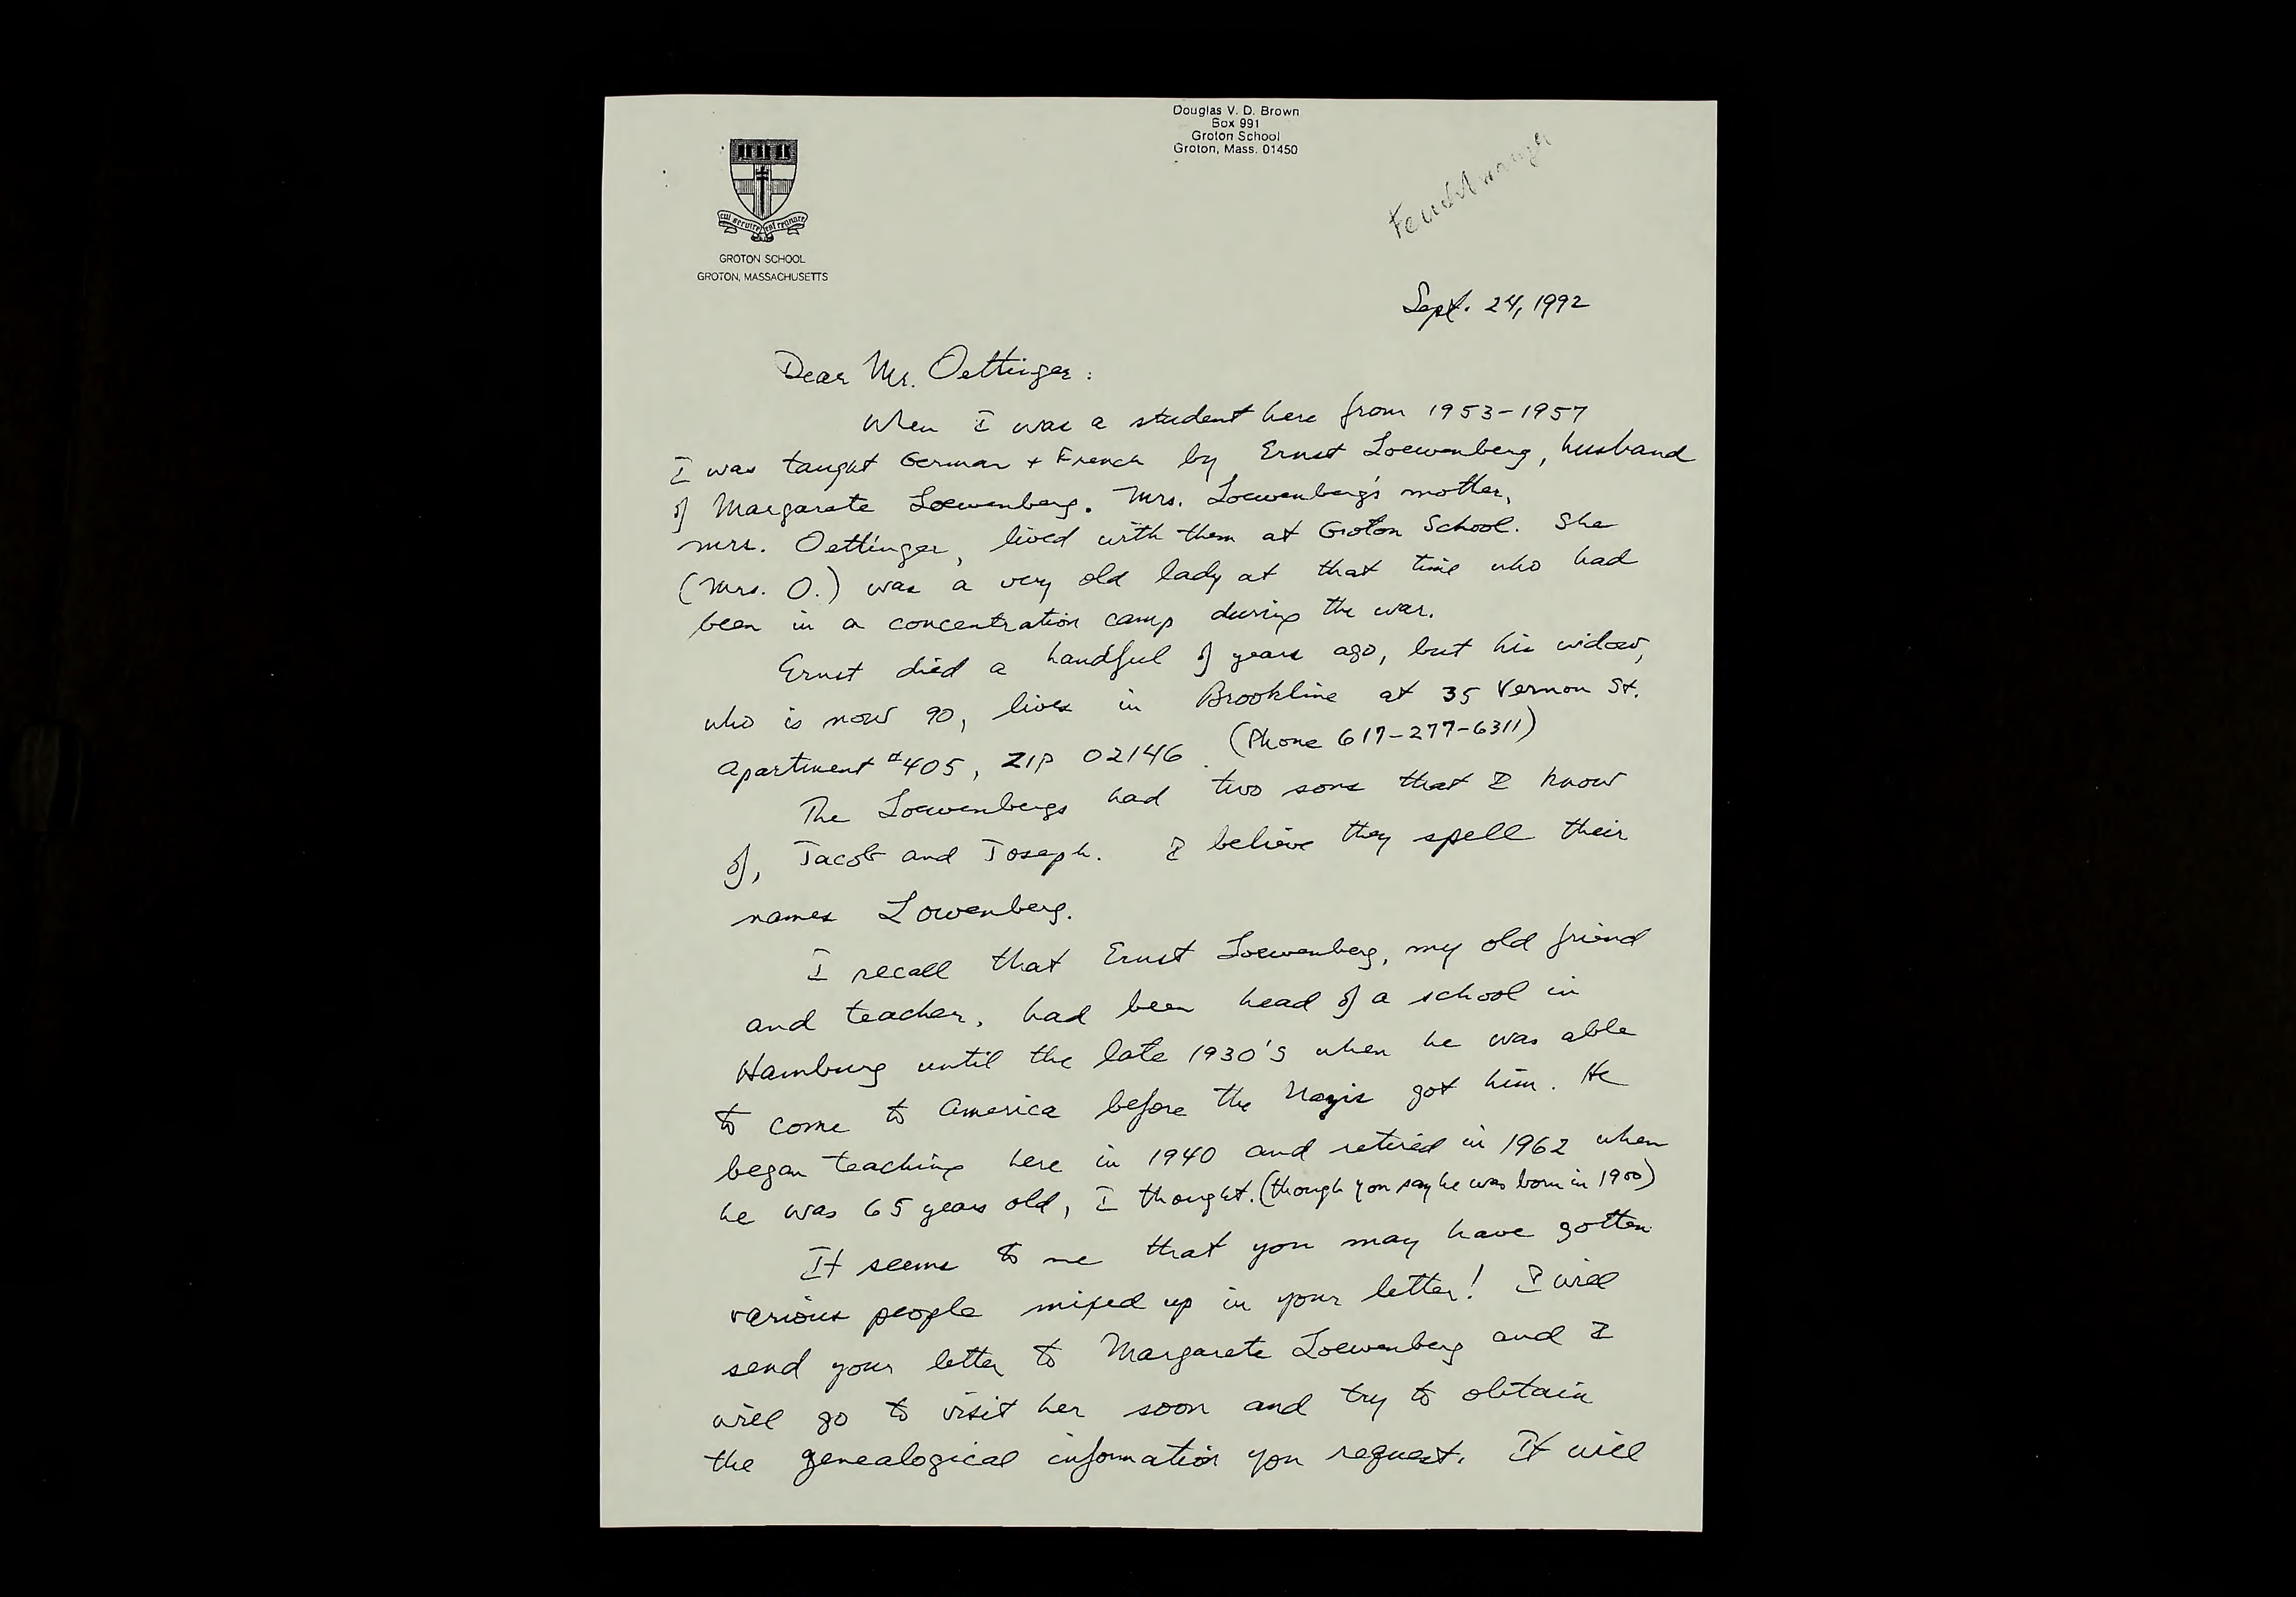 Douglas V. D. Brown
Box 991
Groton School
Groton, Mass. 01450
cui servire est regnare
GROTON SCHOOL
GROTON, MASSACHUSETTS
Feuchtwanger
Sept. 24, 1992
Dear Mr. Oettinger:
When I was a student here from 1953-1957
I was taught German + French by Ernst Loewenberg, husband
of Margarete Loewenberg. Mrs. Loewenberg's mother,
Mrs. Oettinger, lived with them at Groton School. She
(Mrs. O.) was a very old lady at that time who had
been in a concentration camp during the war.
Ernst died a handful of years ago, but his widow,
who is now 90, lives in Brookline at 35 Vernon St.
Apartment #405, ZIP 02146. (Phone 617-277-6311)
The Loewenbergs had two sons that I know
of, Jacob and Joseph. I believe they spell their
names Lowenberg.
I recall that Ernst Loewenberg, my old friend
and teacher, had been head of a school in
Hamburg until the late 1930's when he was able
to come to America before the Nazis got him. He
began teaching here in 1940 and retired in 1962 when
he was 65 years old, I thought. (though you say he was born in 1900)
It seems to me that you may have gotten
various people mixed up in your letter! I will
send your letter to Margarete Loewenberg and I
will go to visit her soon and try to obtain
the genealogical information you request. It will